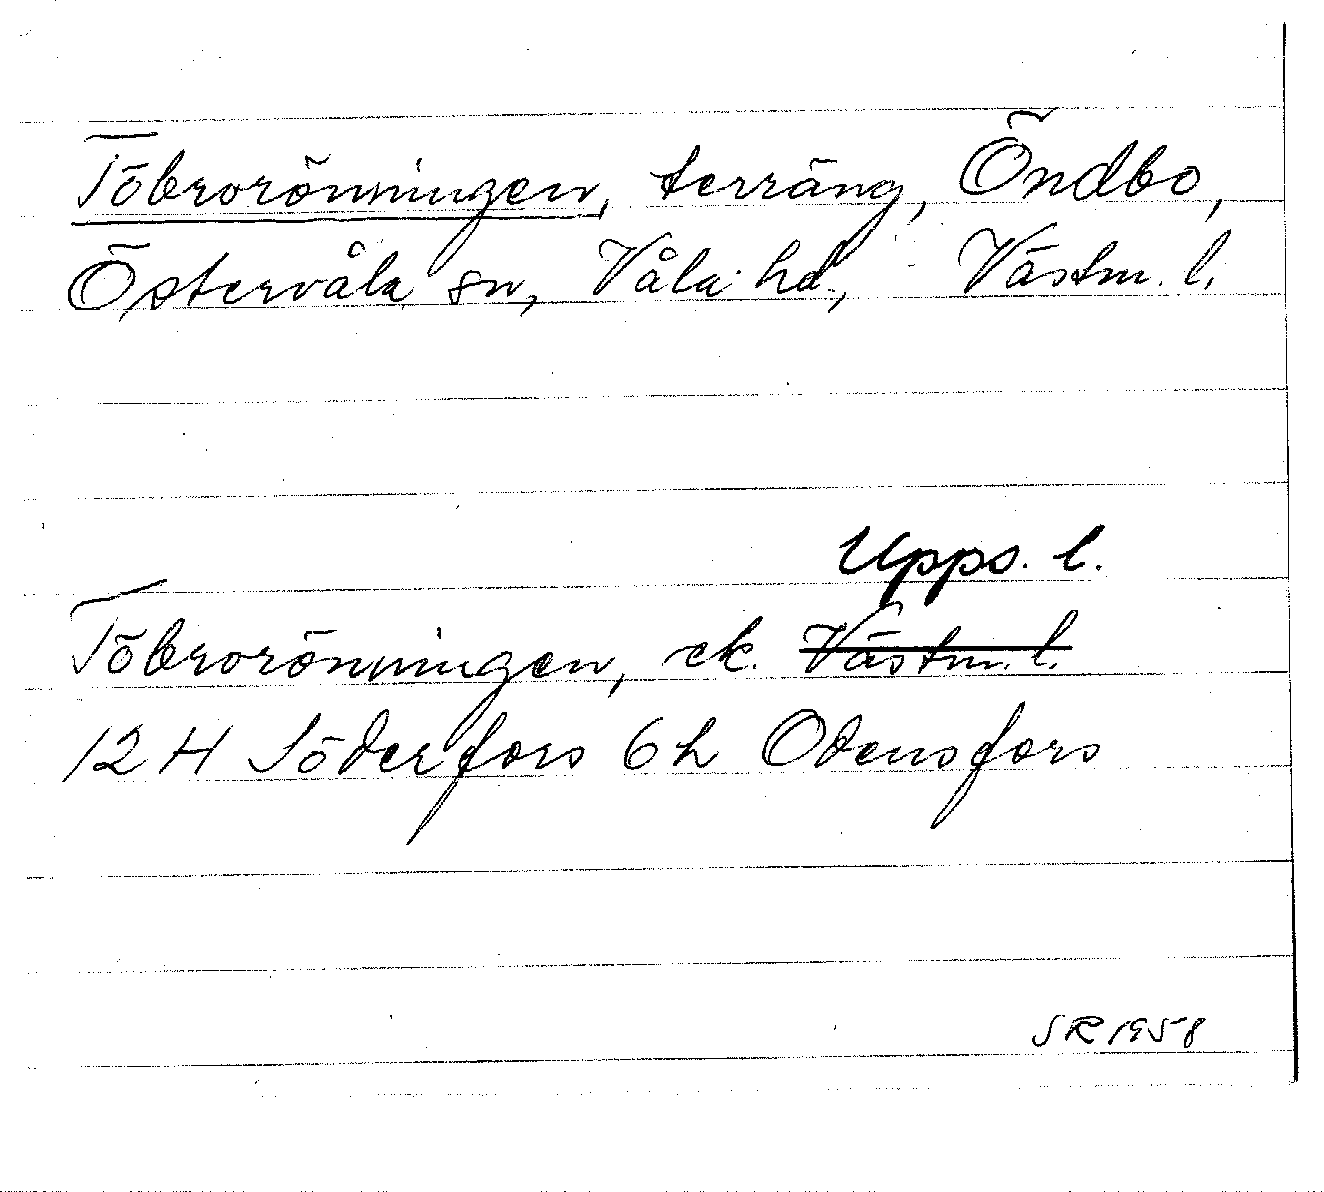 Töbrorönningen, terräng, Öndbo,
Östervåla sn, Våla hd, Västm. l.
Upps. l.
Töbrorönningen, ek. Västm. l.
12 H Söderfors 6 h Odensfors
SR 1958